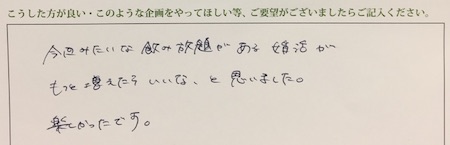 こうした方が良い・このような企画をやってほしい等、ご要望がございましたらご記入ください。
今回みたいな飲み放題がある婚活が
もっと増えたらいいな、と思いました。
楽しかったです。